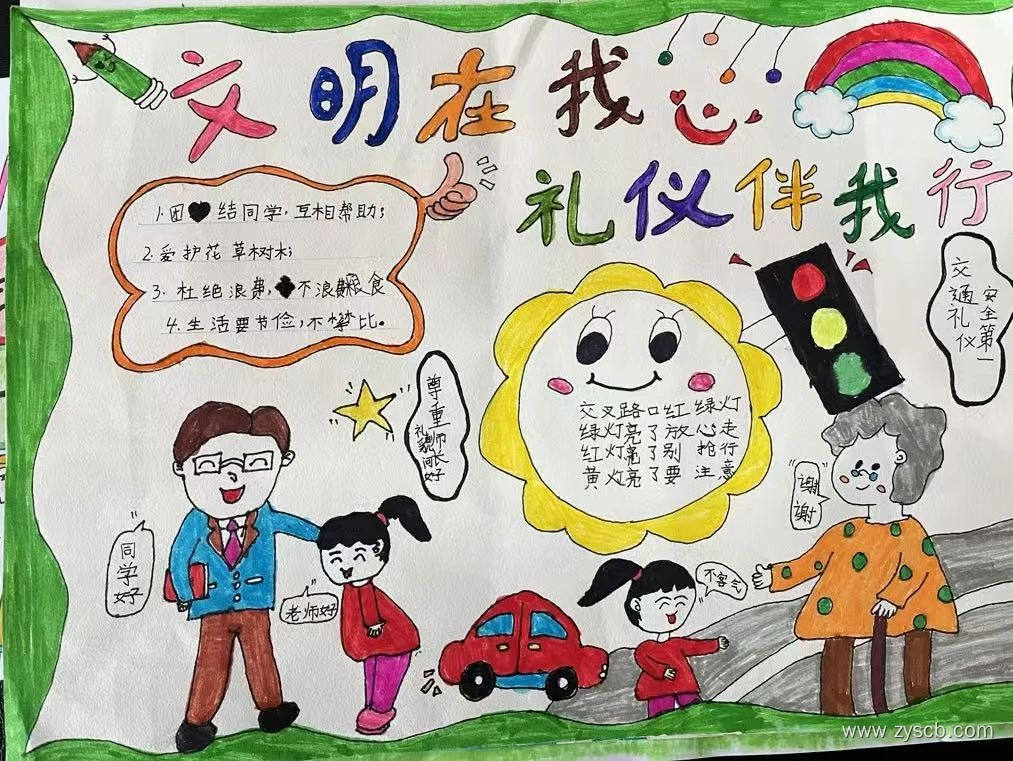 文明在我心
礼仪伴我行
1.团结同学,互相帮助;
2.爱护花草树木;
3.杜绝浪费,不浪费粮食
4.生活要节俭,不攀比。
交通礼仪
安全第一
尊重师长
礼貌问好
交叉路口红绿灯
绿灯亮了放心走
红灯亮了别抢行
黄灯亮了要注意
谢谢
同学好
老师好
不客气
www.zyscb.com